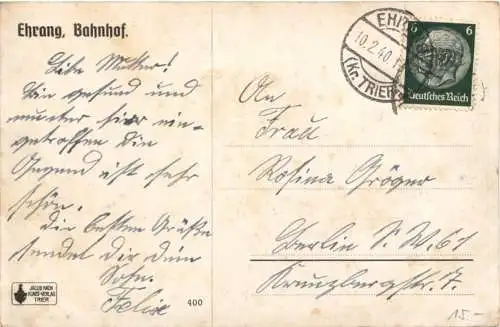 Ehrang, Bahnhof.
Liebe Mutter!
Bin gesund und
munter hier ein-
getroffen Die
Gegend ist sehr
schön.
Die besten Grüße
sendet dir dein
Sohn.
Felix
JACOB NACH
KUNST-VERLAG
TRIER
400
EHR
10.2.40
(Kr. TRIER)
6
6
Deutsches Reich
An
Frau
Rosina Gröger
Berlin S.W. 61
Kreuzbergstr. 7.
15.-